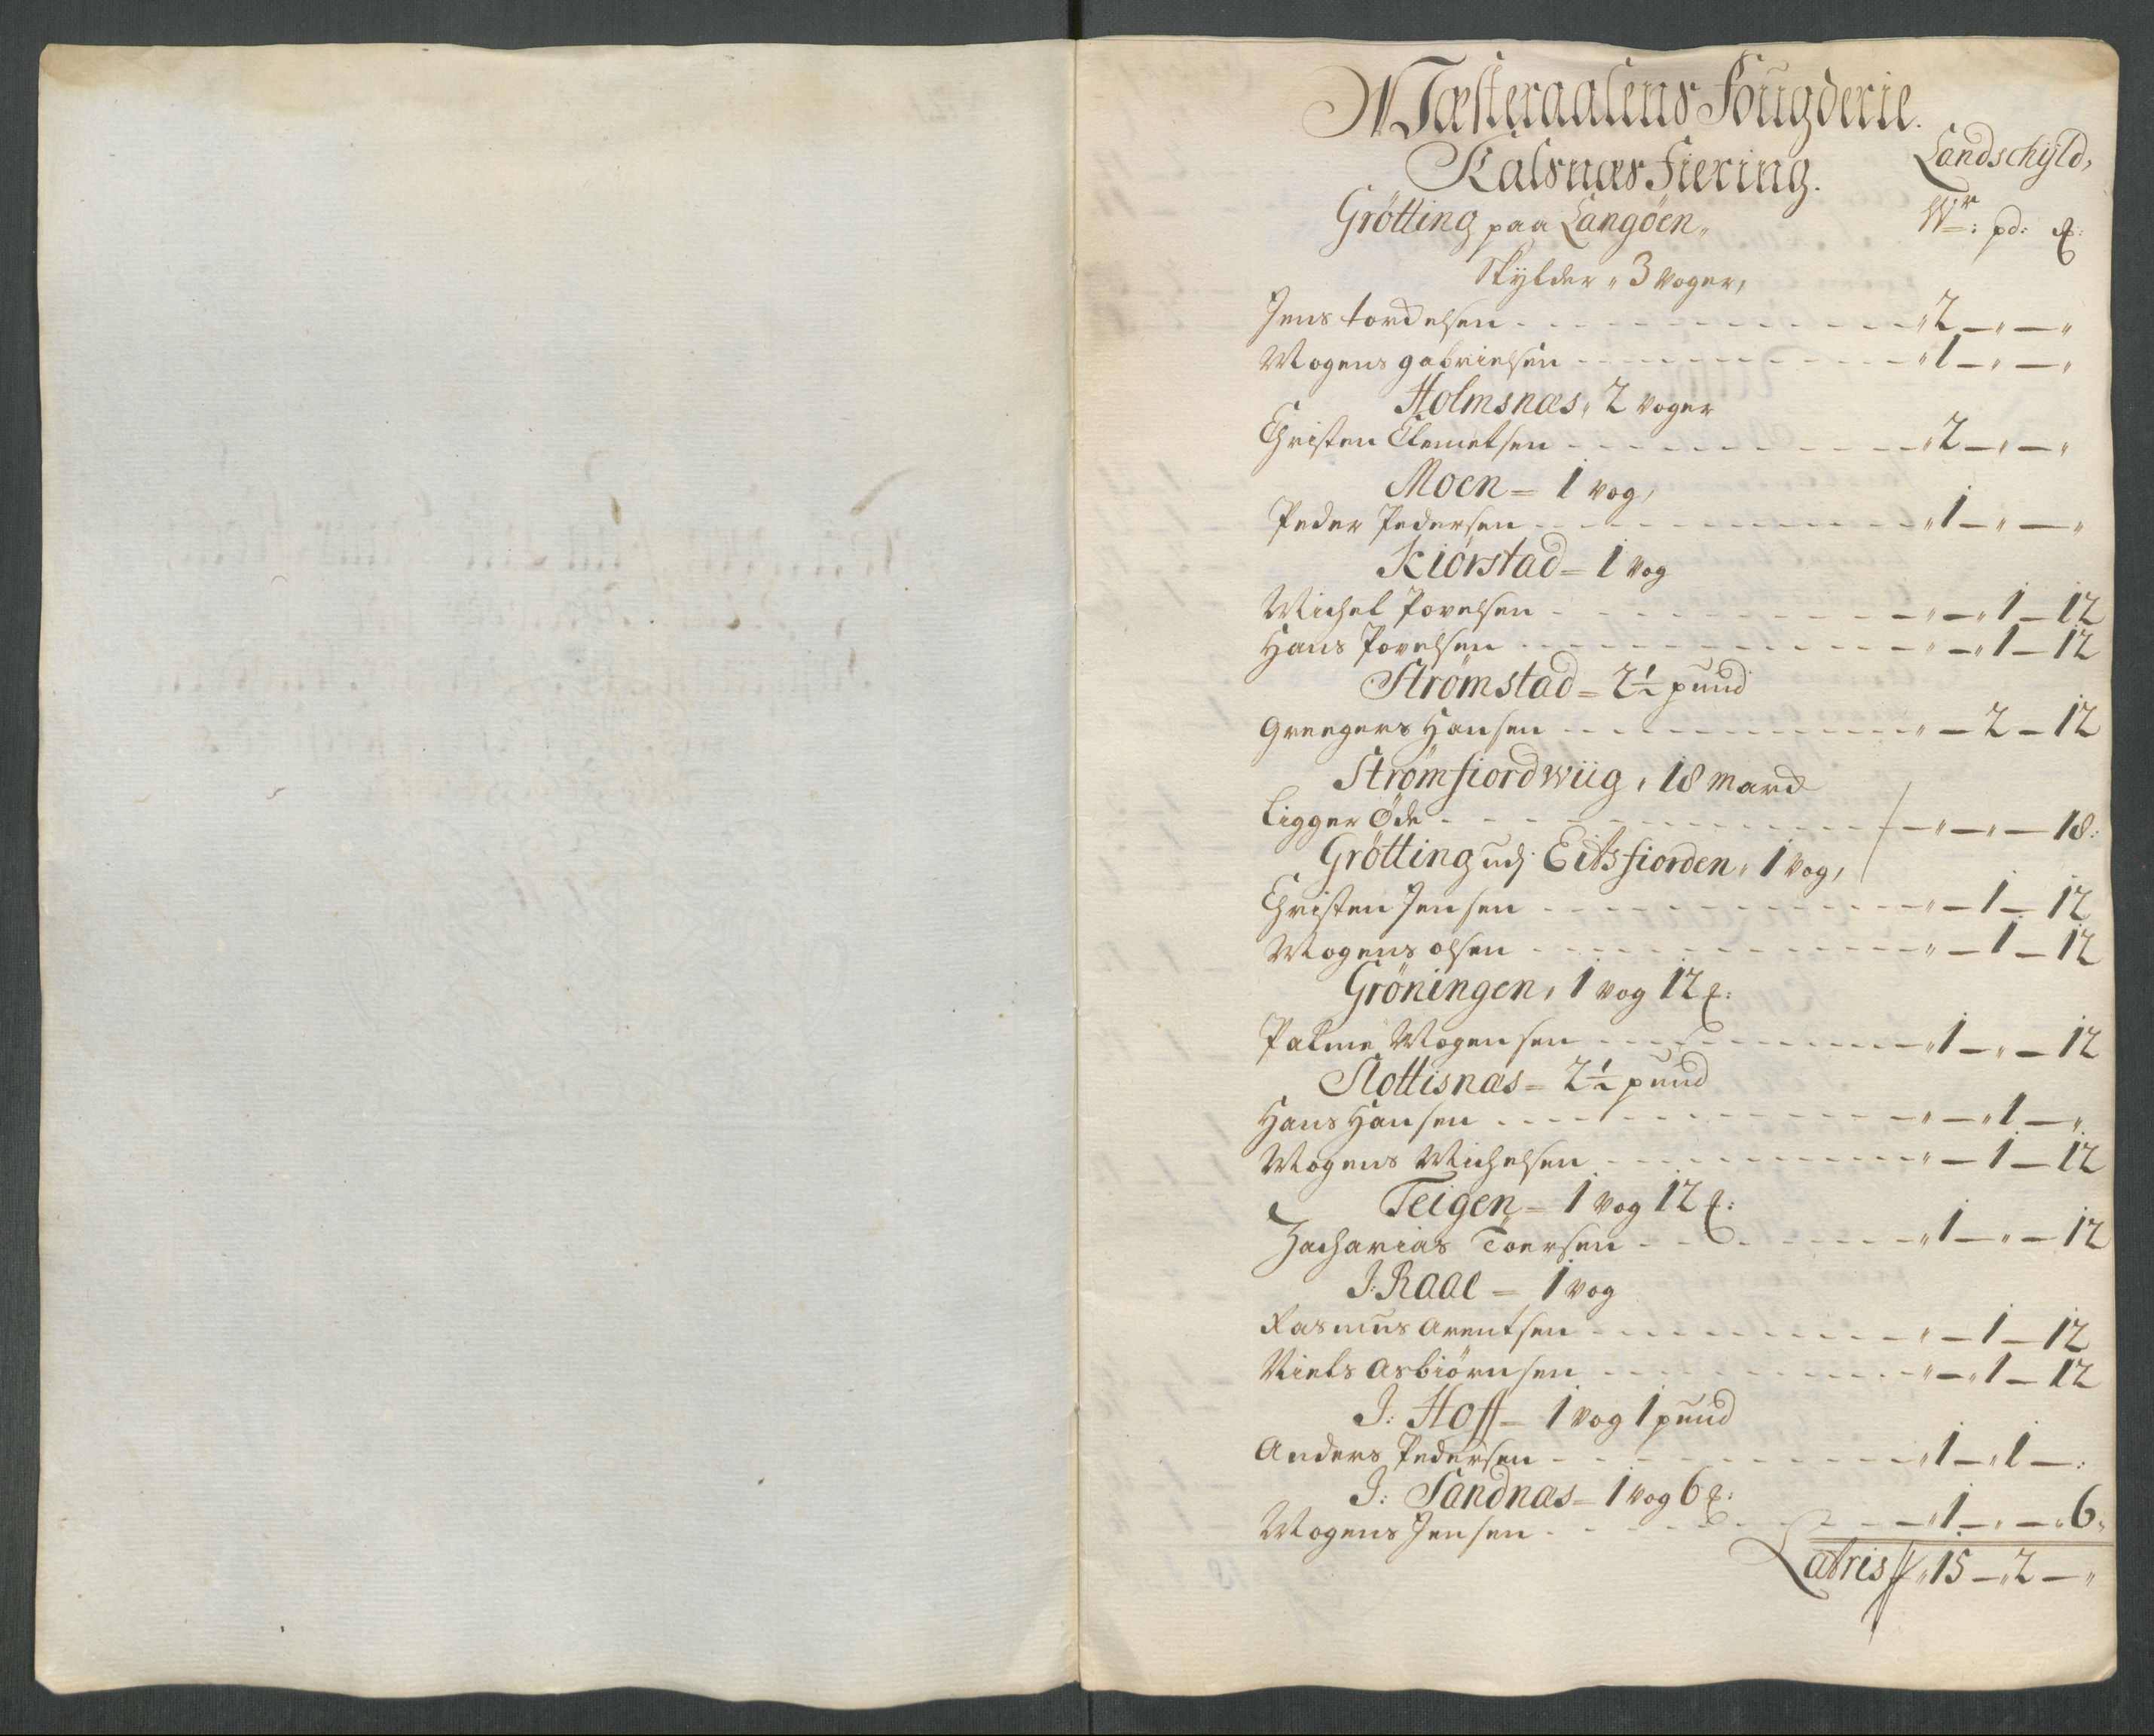 Wæsteraalens Fougderie.
Kalsnæs Fiering.
Landschÿld,
Grötting paa Langöen,,
Wr: pd: ꝶ:
Skÿlder „ 3 Voger,
Jens tordelsen - - - „ 2 — „ — „
Mogens gabrielsen - - - „ 1 — „ — „
Holmsnæs, 2 Voger
Christen Clemetsen - - - „ 2 — „ — „
Moen = 1 Vog,
Peder Pedersen - - - „ 1 — „ — „
Kiörstad = 1 Vog
Michel Povelsen - - - „ — „ 1 — 12
Hans Povelsen - - - „ — „ 1 — 12
Strömstad = 2½ puud
Greegers Hansen - - - „ — 2 — 12
Strömfiordwiig, 18 mard
Ligger Öde - - - — „ — „ — 18:
Grötting udj Eitsfiorden, 1 Vog,
Christen Jensen - - - „ — 1 — 12
Mogens olsen - - - „ — 1 — 12
Gröningen, 1 Vog 12 ꝶ:
Palme Mogensen - - - „ 1 — „ — 12
Slottisnæs = 2½ puud
Hans Hansen - - - „ — „ 1 — „
Mogens Michelsen - - - „ — 1 — 12
Teigen = 1 Vog 12 ꝶ:
Zacharias Toersen - - - „ 1 — „ — 12
J: Raae = 1 Vog
Rasmus Arentsen - - - „ — 1 — 12
Niels Asbiörnsen - - - „ — „ 1 — 12
J: Hoff = 1 Vog 1 puud
Anders Pedersen - - - „ 1 — „ 1 — :
J: Sandnæs = 1 Vog 6 ꝶ:
Mogens Jensen - - - „ 1 — „ — „ 6„
Latris „ 15 — „ 2 — „